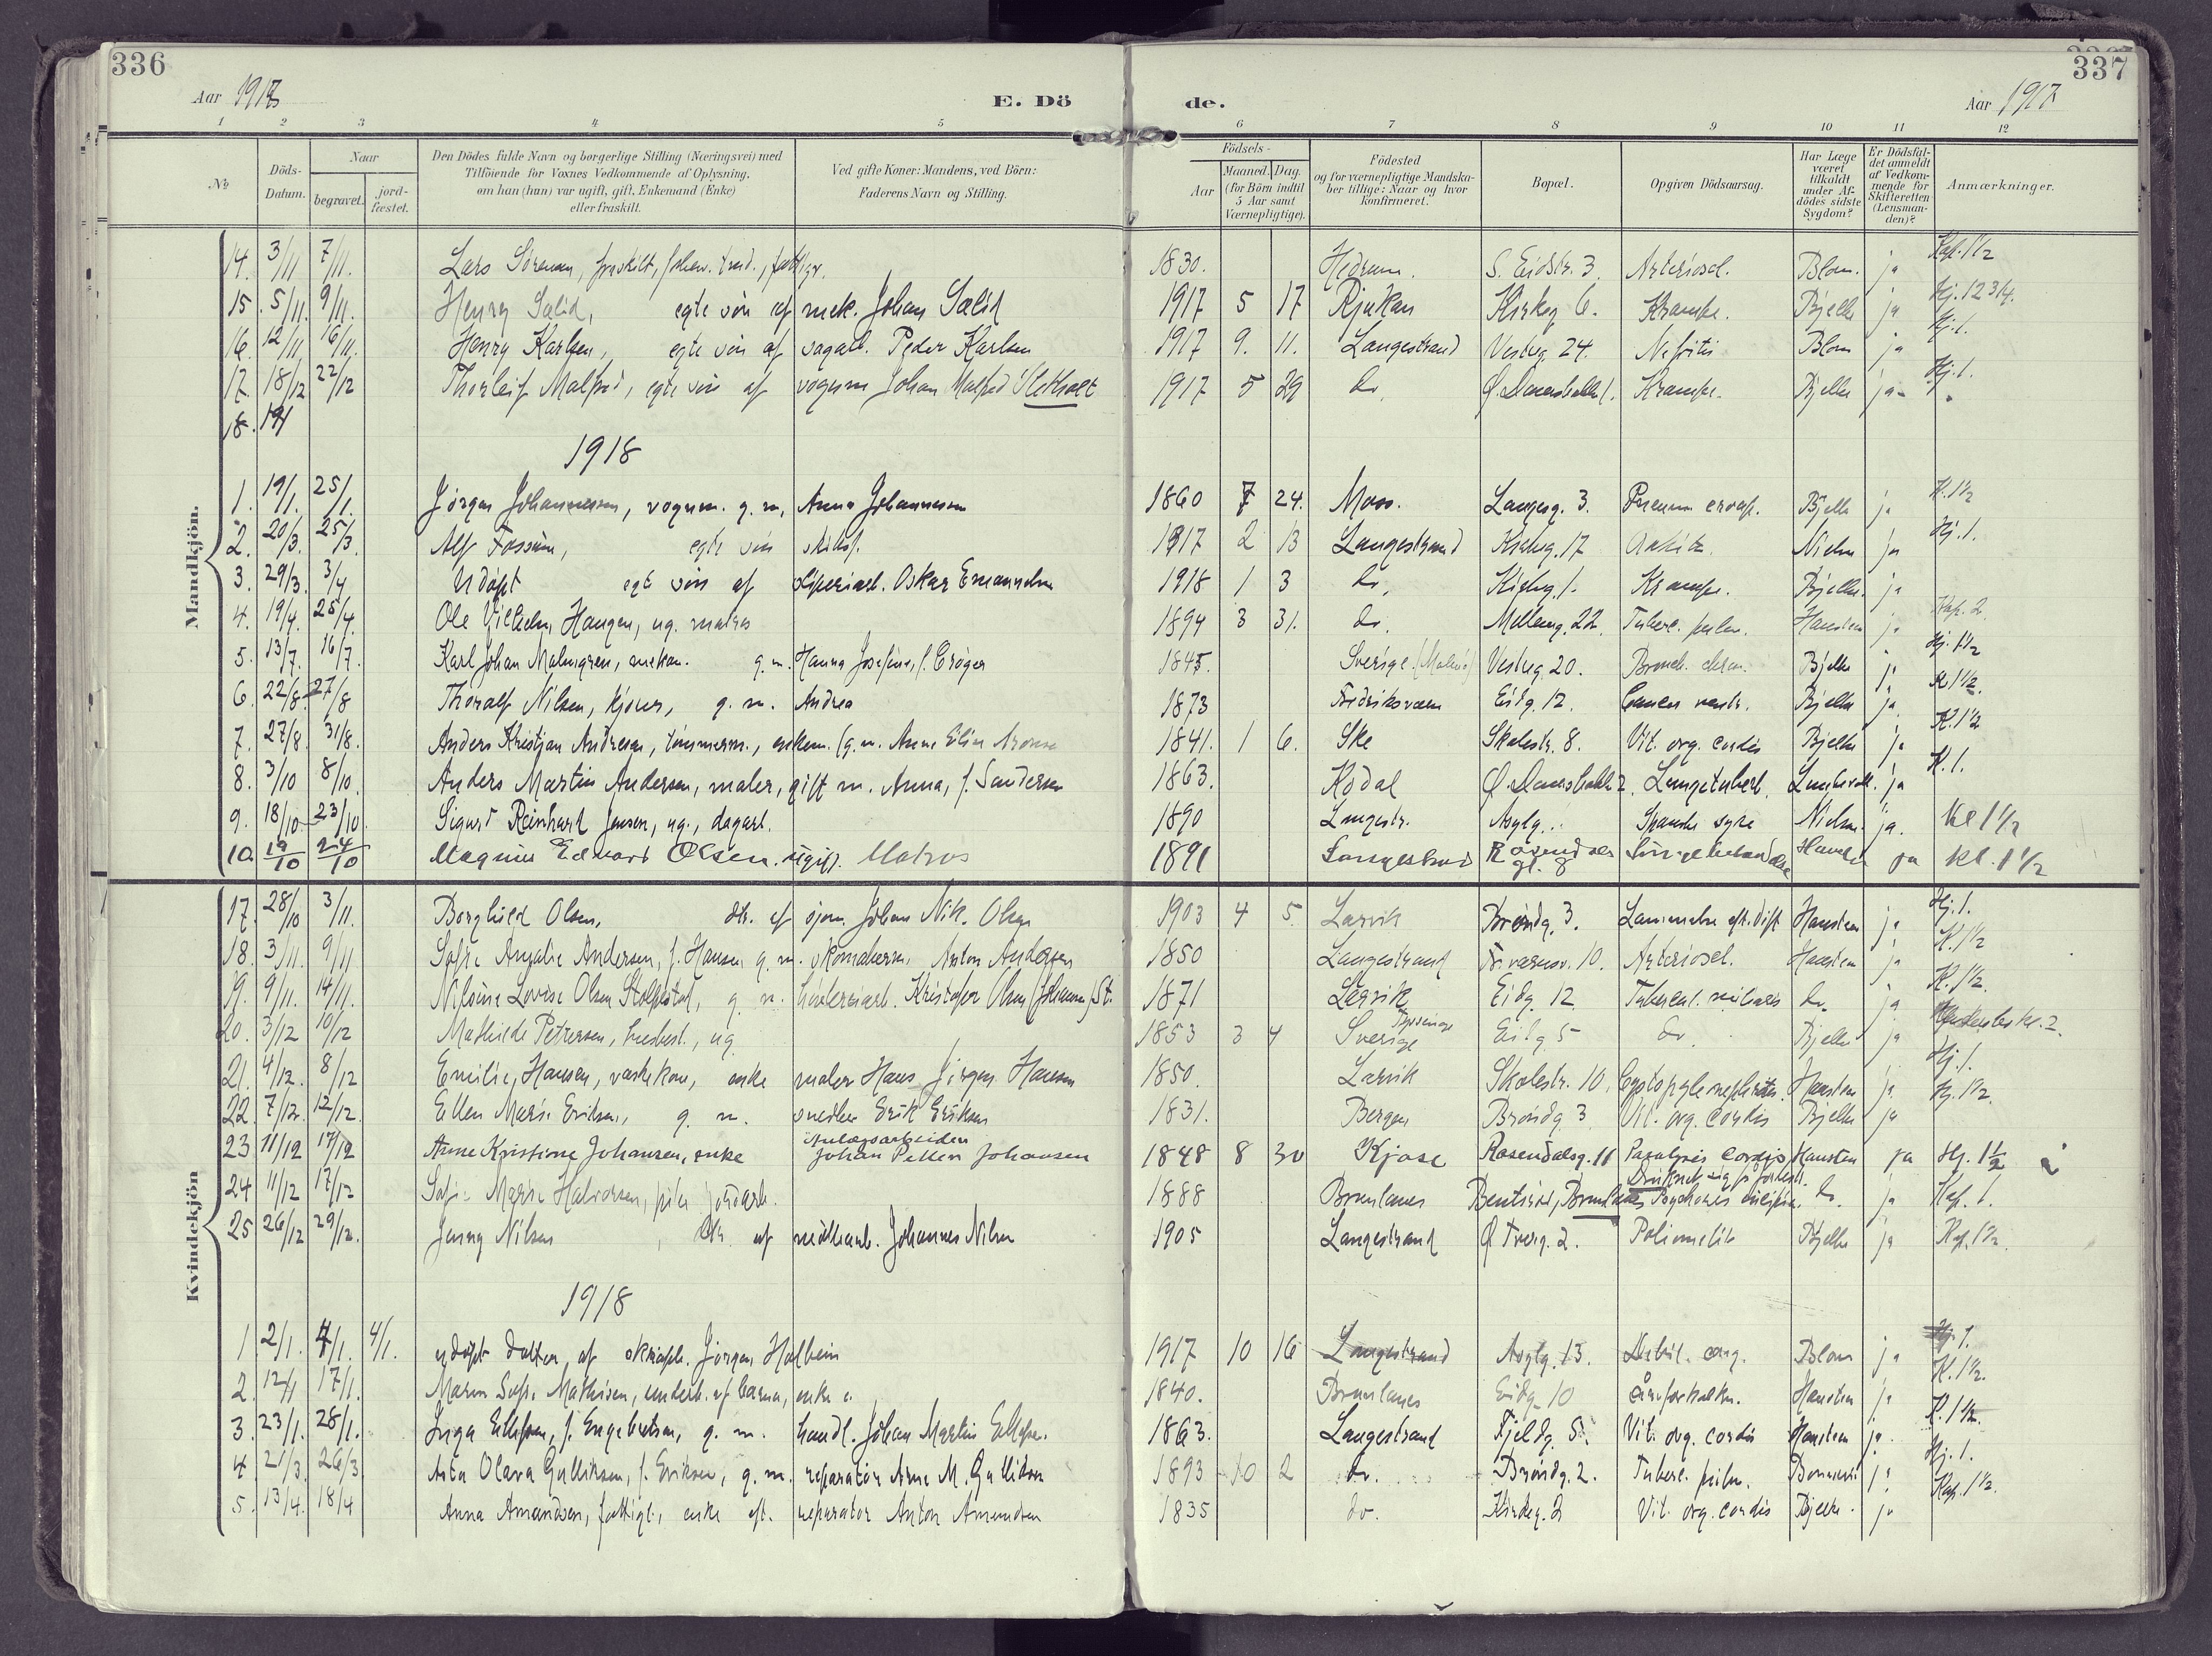 336
337
Aar 1917
E. Dö
de.
Aar 1917
1 2 3 4 5 6 7 8 9 10 11 12
№
Döds-
Datum.
Naar
begravet.
jord-
fæstet.
Den Dödes fulde Navn og borgerlige Stilling (Næringsvei) med
Tilföiende for Voxnes Vedkommende af Oplysning,
om han (hun) var ugift, gift, Enkemand (Enke)
eller fraskilt.
Ved gifte Koner: Mandens, ved Börn:
Faderens Navn og Stilling.
Födsels-
Aar
Maaned. Dag.
(for Börn indtil
5 Aar samt
Værnepligtige).
Födested
og for værnepligtige Mandska-
ber tillige: Naar og hvor
konfirmeret.
Bopæl.
Opgiven Dödsaarsag.
Har Læge
været
tilkaldt
under Af-
dödes sidste
Sygdom?
Er Dödsfal-
det anmeldt
af Vedkom-
mende for
Skifteretten
(Lensman-
den)?
Anmærkninger.
Mandkjön.
14. 3/11 7/11. Lars Sörensen, fraskilt, 1830. Hedrum. S. Eidstr. 3. Arterioscl. Blom. ja Kap. 1 1/2
15. 5/11 9/11. Henry Sælid, egte sön af mek. Johan Sælid 1917 5 17 Rjukan Kirkeg 6. Krampe. Bjelke ja
16. 12/11 16/11. Henry Karlsen, egte sön af sagarb. Peder Karlsen 1917 9. 11. Langestrand Vestvg. 24. Nefritis Blom ja Kj. 1.
17. 18/12 22/12 Thorleif Malfred, egte sön af vognm Johan Malfred 1917 5 29 do. Krampe. Bjelke ja Kj. 1.
18. 19/
1918
1. 19/1. 25/1. Jörgen Johannesen, vognm. g. m. Anna Johannesen 1860 7 24. Moss. Langesg. 3. Pneum croup. Bjelke ja K. 1 1/2
2. 20/3. 25/3. Alf Fossum, egte sön 1917 2 13 Langestrand Kirkeg. 17 Nielsen ja Kj. 1.
3. 29/3. 3/4 Udöpt egt sön af Oskar Emanuelsen 1918 1 3 do. Kirkeg. 1. Krampe. Bjelke. ja
4. 19/4. 25/4. Ole Vilhelm Haugen, ug. matros 1894 3 31. do. Melleng. 22. Tuberc. pulm. Hansteen ja Kap. 2
5. 13/7. 16/7. Karl Johan Malmgren, mekan. g. m. Hanna Josefine, f. Cröger 1845. Sverige (Malmö) Vestvg 20. Bronch. chron. Bjelke ja Kj. 1 1/2
6. 22/8. 27/8 Thoralf Nilsen, kjörer, g. m. Andrea 1873 Fredriksværn Eidg. 12. Cancer ventr. Bjelke ja K 1 1/2.
7. 27/8. 31/8. Anders Kristian Andresen, tömmerm., enkem. (g. m. Anne Elin 1841. 1 6. Ske Skolestr. 8. Vit. org. cordis Bjelke ja K. 1 1/2
8. 3/10 8/10. Anders Martin Andersen, maler, gift m. Anna, f. Sandersen 1863. Kodal Lungetuberk. ja K. 1.
9. 18/10 23/10. Sigurd Reinhard Jensen, ug., dagarb. 1890 Langestr. Asylg. Spanske syke Nielsen. ja. Kl 1 1/2
10. 19/10 24/10 Magnus Edvard Olsen. ugift. Matros 1891 Langestrand Rosendals gt. 8 Lungebetændelse ja Kl. 1 1/2
Kvindekjön
17. 28/10 3/11. Borghild Olsen, dtr. af sjöm. Johan Nik. Olsen 1903 4 5 Larvik Bröndg. 3. Lammelse eft. dift Hansteen ja Kj. 1.
18. 3/11. 9/11 Sofie Amalie Andersen, f. Hansen g. m. skomakerm. Anton Andersen 1850 Langestrand 10. Arterioscl. Hansteen ja K. 1 1/2
19. 9/11. 14/11. Nilsine Lovise Olsen Stolpestad, g. m. Kristofer Olsen (Johansen) St. 1871 Larvik Eidg. 12 Tubercul. miliaris do. ja K. 1 1/2.
20. 3/12 10/12 Mathilde Petersen, husbest., ug 1853 3 4 Sverige Eidg 5 do. Bjelke ja kl. 2.
21. 4/12. 8/12 Emilie Hansen, vaskekone, enke maler Hans Jörgen Hansen 1850. Larvik Skolestr. 10. Cystopyelonephritis. Hansteen ja Kj. 1.
22. 7/12. 12/12. Ellen Marie Eriksen, g. m. snedker Erik Eriksen 1831. Bergen Bröndg 3 Vit. org. cordis Bjelke ja Kj. 1 1/2.
23 11/12 17/12 Anne Kristine Johansen, enke Anlægsarbeider Johan Petter Johansen 1848 8 30 Kjose Rosendalsg. 11 Paralysis cordis Hansten ja Kj. 1 1/2
24 11/12 17/12 Sofie Marie Halvorsen, pike, 1888 Brunlanes Bentsrød, Brunlanes Druknet sig Psychosis do. ja Kap. 1.
25 26/12 29/12. Jenny Nilsen, dtr. af möllearb. Johannes Nilsen 1905 Langestrand Ø Tverg. 2. Poliomelit Bjelke ja Kap. 1 1/2.
1918
1 2/1. 4/1. 4/1. udöpt datter af Jörgen Holbein 1917 10 16 Langestrand Asylg. 13. Debil. cong. Blom ja Kj. 1.
2. 12/1 17/1. Maren Sofie Mathisen, underh. af barna, enke e. 1840. Brunlanes Eidg. 10 Åreforkalkn. Hansteen ja K. 1 1/2.
3. 23/1. 28/1. Inga Ellefsen, f. Engebretsen, g. m. handl. Johan Martin Ellefsen. 1863. Langestrand Fjeldg. 5. Vit. org. cordis Hansteen ja K. 1 1/2.
4 21/3 26/3 Asta Olava Gulliksen, f. Eriksen, g. m. reparatör Arne M. Gulliksen 1893 10 2 do. Bröndg. 2. Tuberc. pulm. ja Kj. 1.
5. 13/4. 18/4 Anna Amandsen, fattigl., enke eft. reparatör Anton Amundsen 1835 do. Kirkeg. 2 Vit. org. cordis Bjelke. ja Kap. 1 1/2.